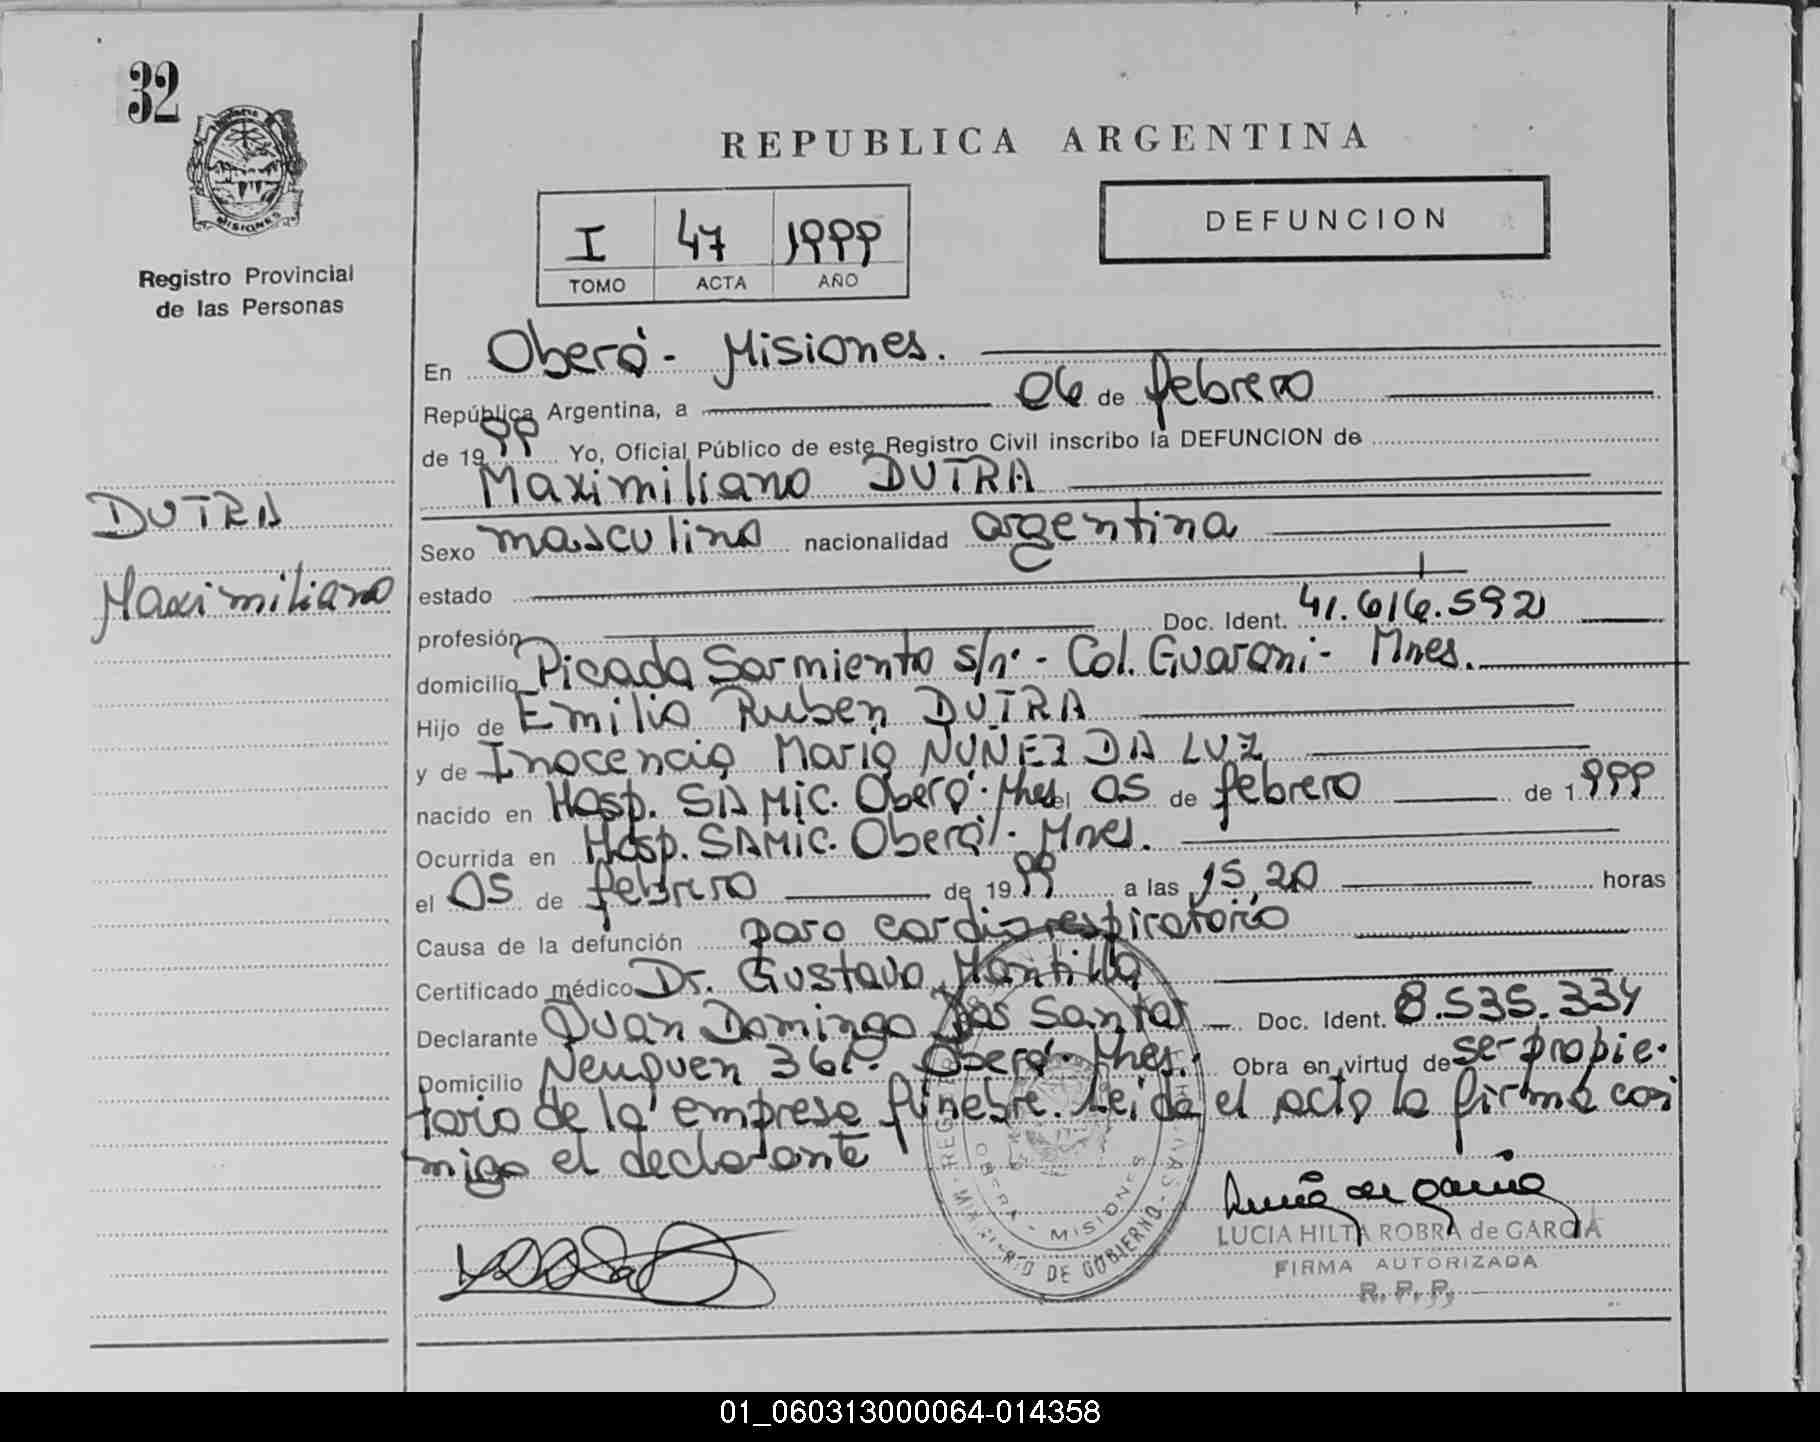 32
MISIONES
Registro Provincial
de las Personas
DUTRA
Maximiliano
REPUBLICA ARGENTINA
I 47 1999
TOMO ACTA AÑO
DEFUNCION
En Oberá- Misiones.
República Argentina, a 06 de febrero
de 1999 Yo, Oficial Público de este Registro Civil inscribo la DEFUNCION de
Maximiliano DUTRA
Sexo masculino nacionalidad argentina
estado
profesión Doc. Ident. 41.616.592
domicilio Picada Sarmiento s/nº- Col. Guarani- Mnes.
Hijo de Emilio Ruben DUTRA
y de Inocencia Maria NUÑEZ DA LUZ
nacido en Hosp. SAMIC. Oberá- Mnes el 05 de febrero de 1999
Ocurrida en Hosp. SAMIC. Oberá- Mnes.
el 05 de febrero de 1999 a las 15,20 horas
Causa de la defunción paro cardiorespiratorio
Certificado médico Dr. Gustavo Mantilla
Declarante Juan Domingo Dos Santos Doc. Ident. 8.535.334
Domicilio Neuquen Oberá- Mnes. Obra en virtud de ser propie-
tario de la empresa fúnebre. Leida el acta la firma con
migo el declarante
OBERA - MISIONES
MINISTERIO DE GOBIERNO
LUCIA HILTA ROBRA de GARCIA
FIRMA AUTORIZADA
R. P. P.
01_060313000064-014358